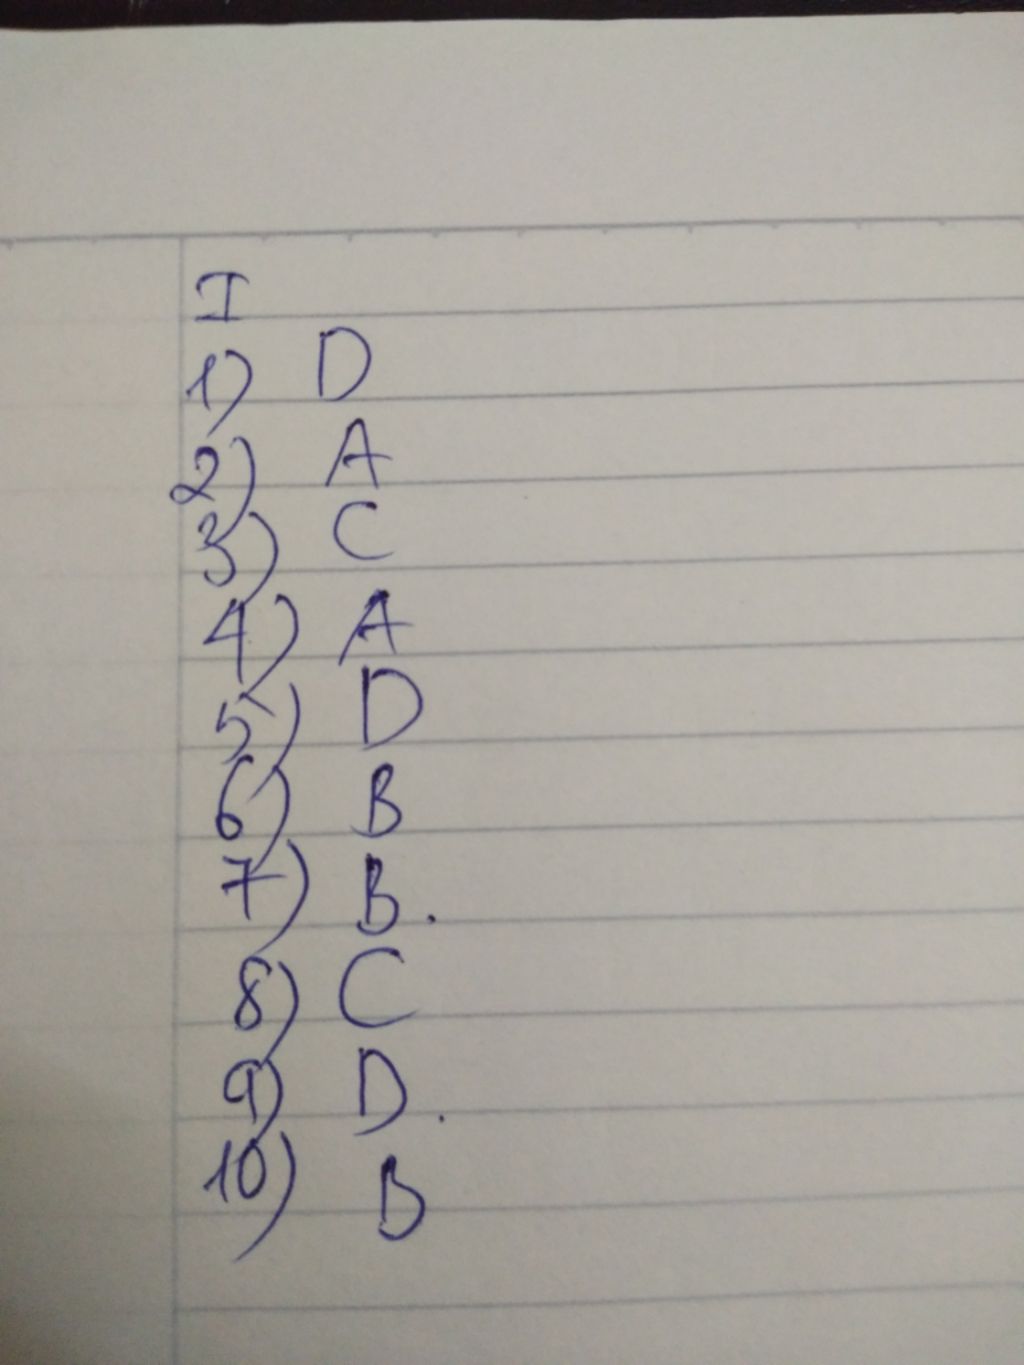 I
1) D
2) A
3) C
4) A
5) D
6) B
7) B.
8) C
9) D.
10) B